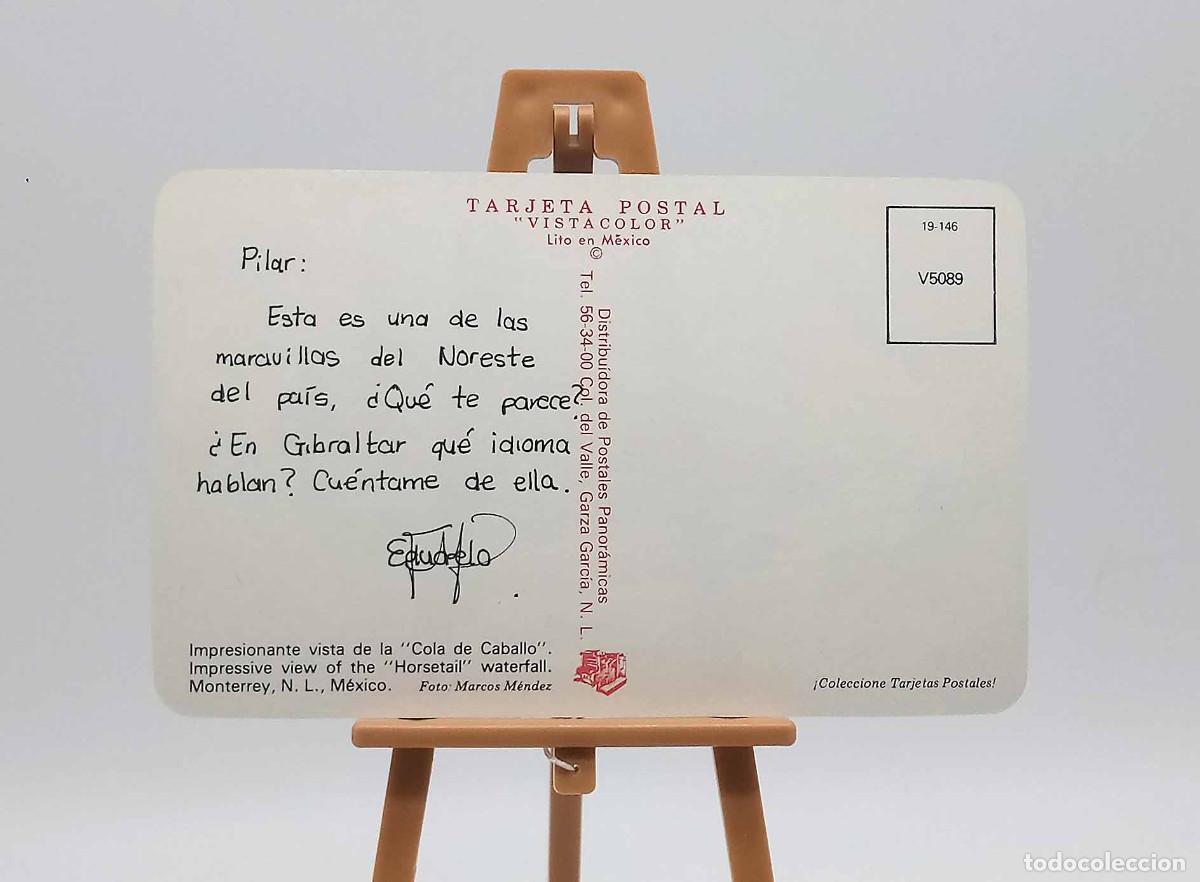 TARJETA POSTAL
"VISTACOLOR"
Lito en México
©
19-146
V5089
Pilar:
Esta es una de las
maravillas del Noreste
del país, ¿Qué te parece?
¿En Gibraltar qué idioma
hablan? Cuéntame de ella.
Distribuídora de Postales Panorámicas
Tel. 56-34-00 Col. del Valle, Garza García, N. L.
Impresionante vista de la "Cola de Caballo".
Impressive view of the "Horsetail" waterfall.
Monterrey, N. L., México. Foto: Marcos Méndez
¡Coleccione Tarjetas Postales!
todocoleccion